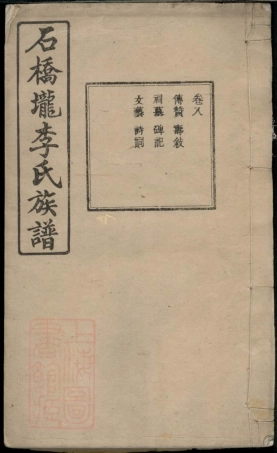 石橋壠李氏族譜
卷八
傳贊 壽敘
祠墓 碑記
文藝 詩詞
上海圖
書館藏